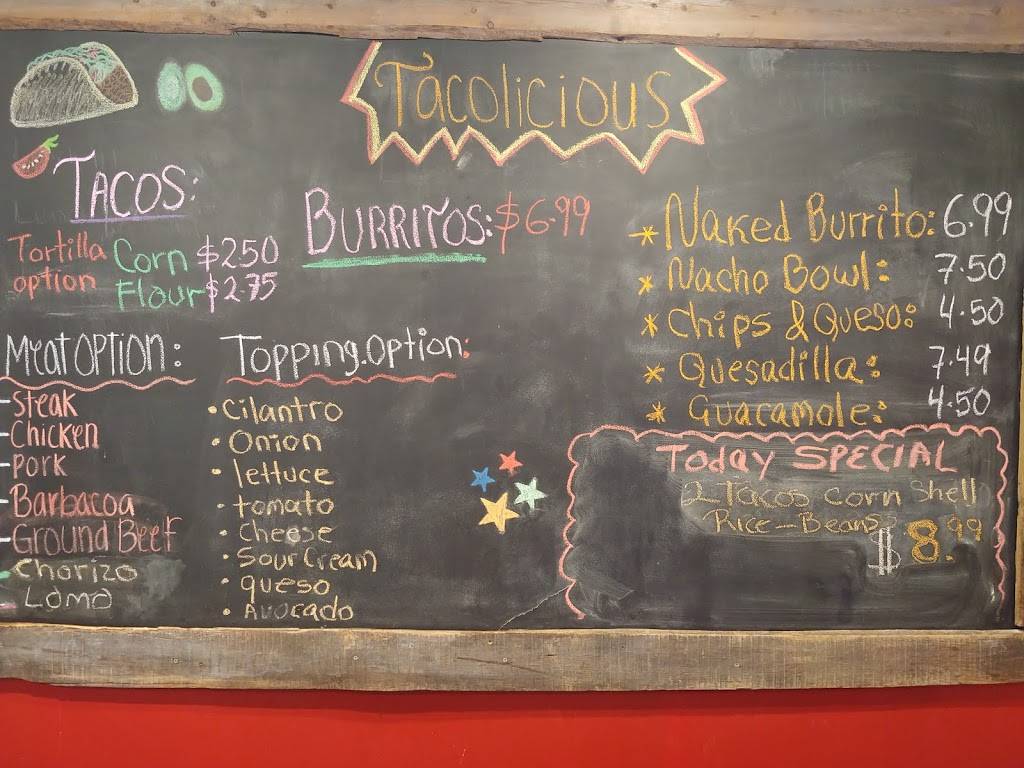 Tacolicious
TACOS:
Tortilla option
Corn $2.50
Flour $2.75
BURRITOS: $6.99
* Naked Burrito: 6.99
* Nacho Bowl: 7.50
* Chips & Queso: 4.50
* Quesadilla: 7.49
* Guacamole: 4.50
Meat OPTION:
- Steak
- Chicken
- Pork
- Barbacoa
- Ground Beef
- Chorizo
- Loma
TOPPING.OPTION:
• Cilantro
• Onion
• lettuce
• tomato
• Cheese
• Sour Cream
• queso
• Avocado
Today SPECIAL
2 Tacos corn Shell
Rice-Beans
$8.99